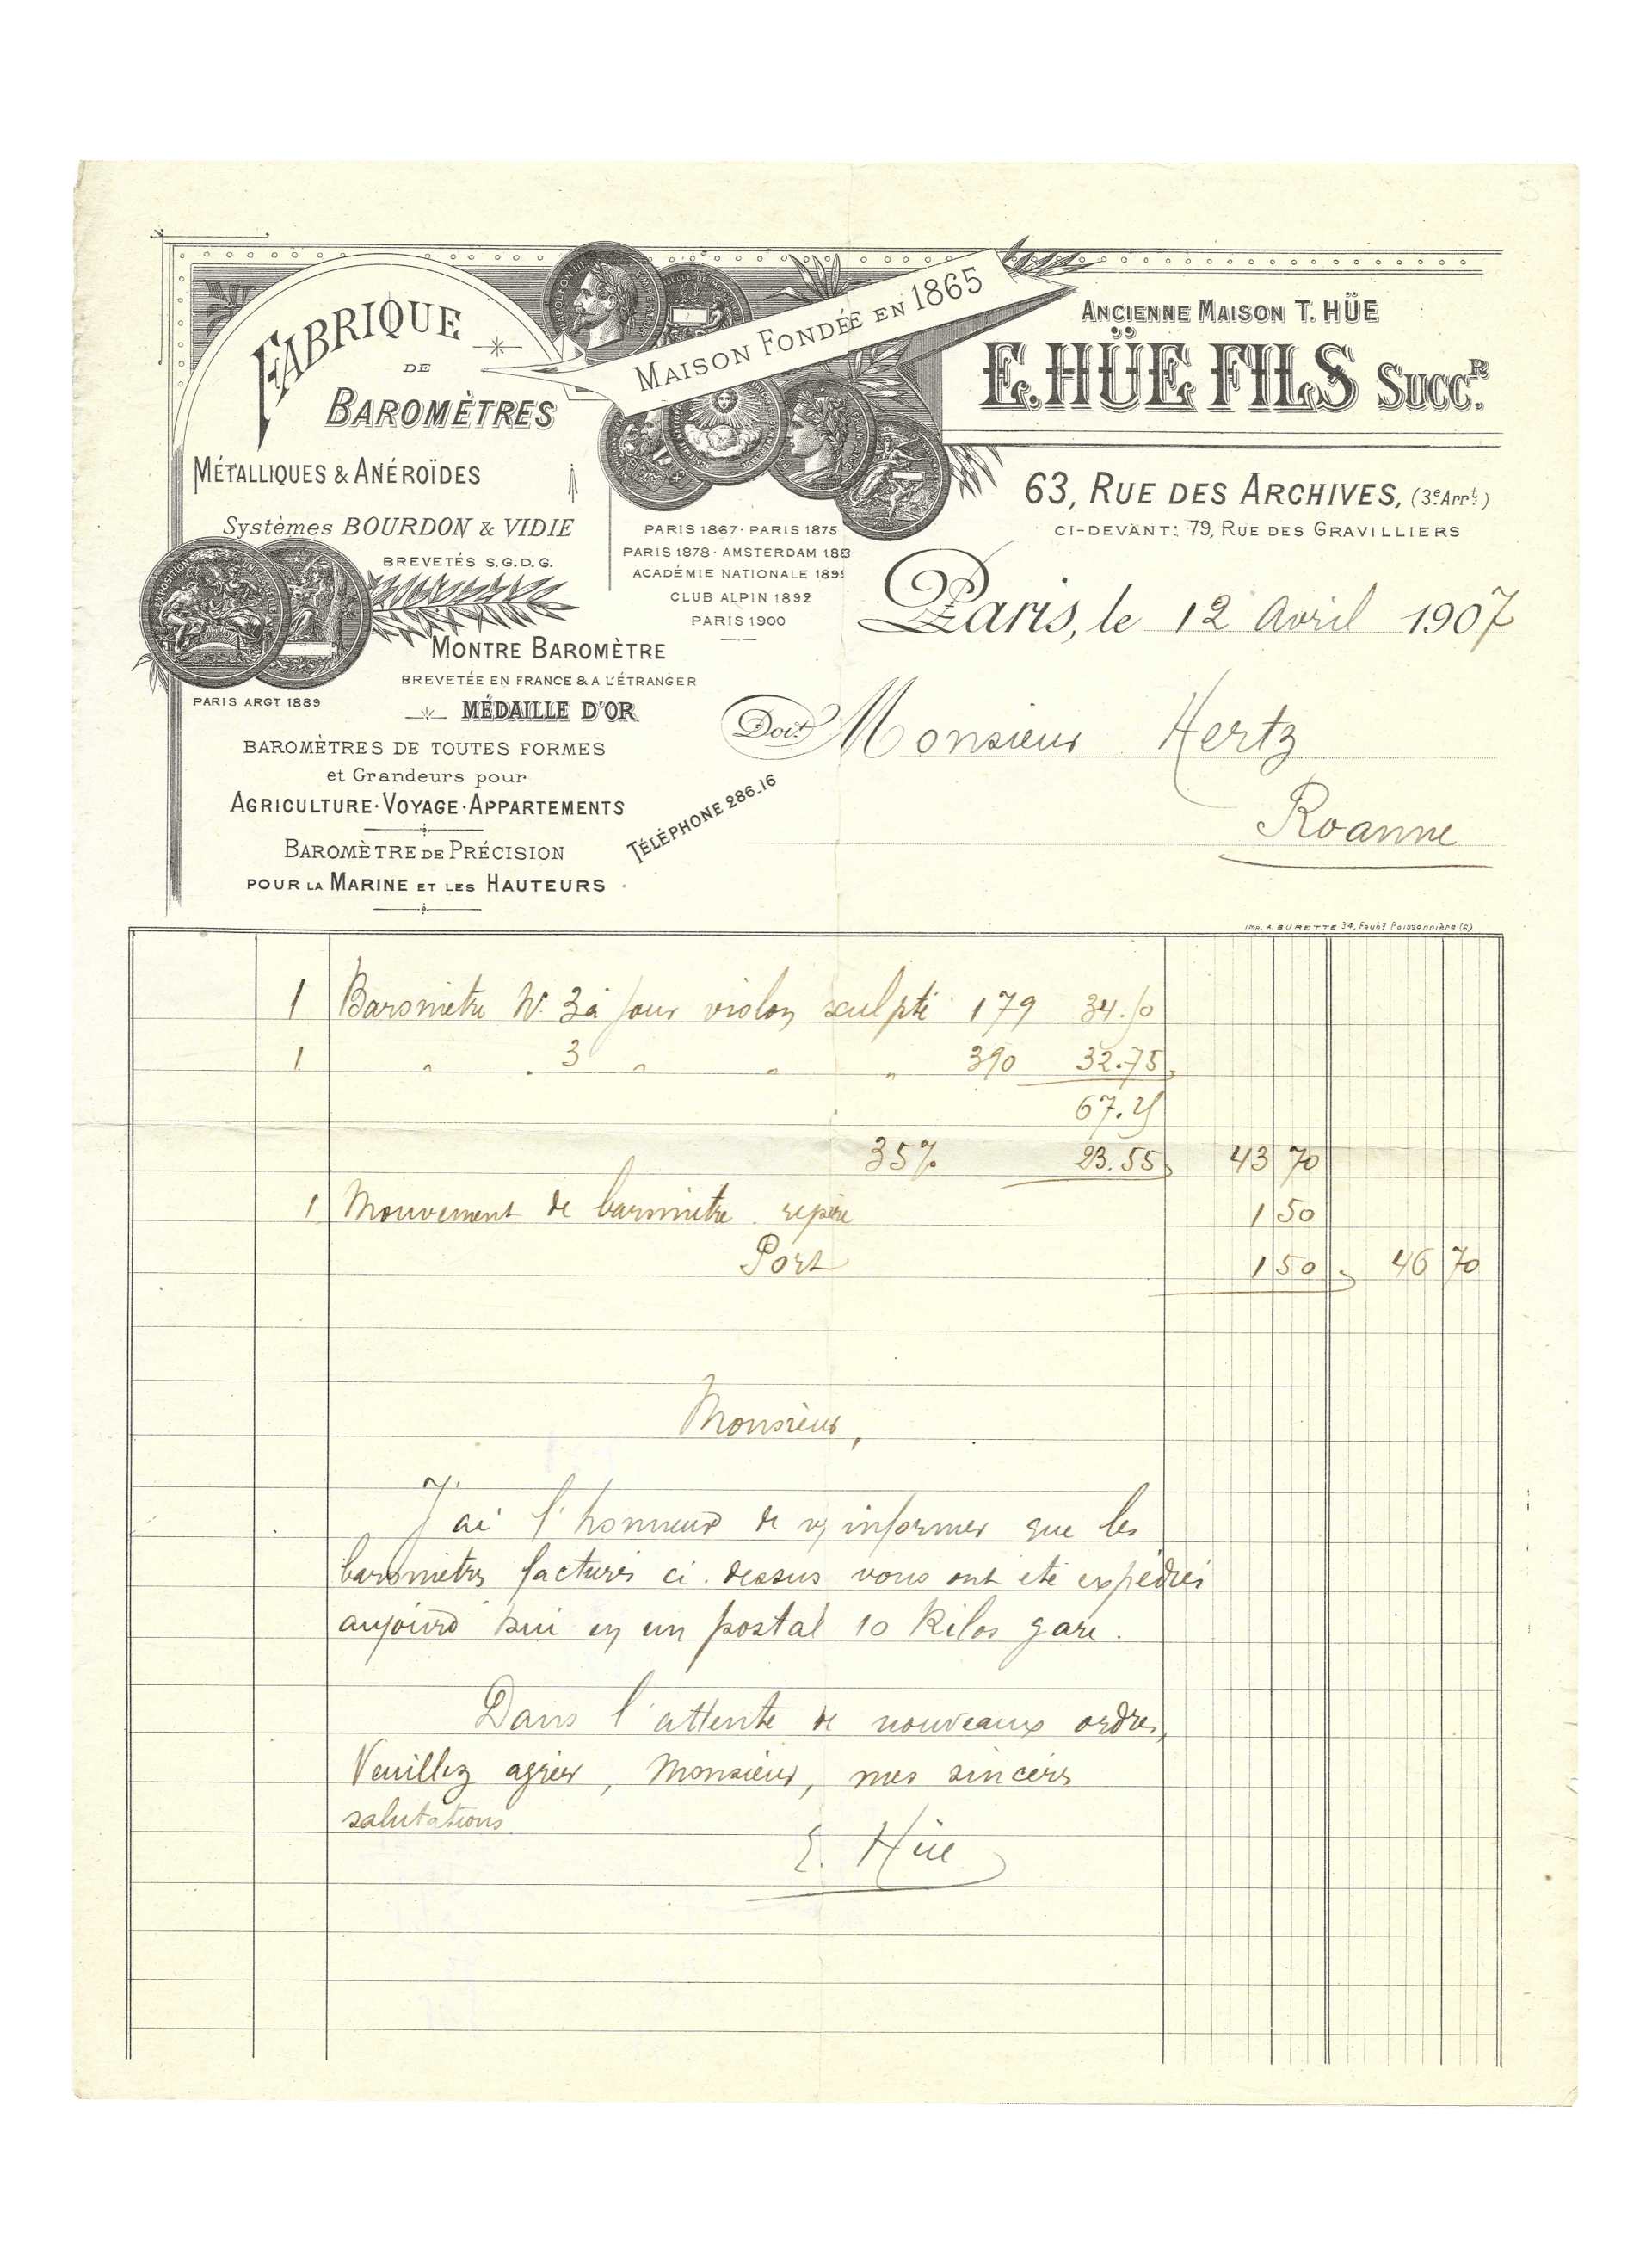 FABRIQUE
DE
BAROMÈTRES
MÉTALLIQUES & ANÉROÏDES
Systèmes BOURDON & VIDIE
BREVETÉS S.G.D.G.
PARIS ARGT 1889
MONTRE BAROMÈTRE
BREVETÉE EN FRANCE & A L'ÉTRANGER
MÉDAILLE D'OR
BAROMÈTRES DE TOUTES FORMES
et Grandeurs pour
AGRICULTURE · VOYAGE · APPARTEMENTS
BAROMÈTRE DE PRÉCISION
POUR LA MARINE ET LES HAUTEURS
MAISON FONDÉE EN 1865
PARIS 1867 · PARIS 1875
PARIS 1878 · AMSTERDAM 188
ACADÉMIE NATIONALE 189
CLUB ALPIN 1892
PARIS 1900
TÉLÉPHONE 286_16
ANCIENNE MAISON T. HÜE
E. HÜE FILS SUCCR.
63, RUE DES ARCHIVES, (3e Arrt.)
CI-DEVANT: 79, RUE DES GRAVILLIERS
Paris, le 12 Avril 1907
Doit Monsieur Hertz
Roanne
Imp. A. BURETTE 34, Faubg Poissonnière (6)
1 Baromètre N° 3 à jour violon sculpté 179 34.50
1 " " 3 " " " 390 32.75
67.25
35% 23.55 43 70
1 Mouvement de baromètre repère 1 50
Port 1 50 46 70
Monsieur,
J'ai l'honneur de v/ informer que les
baromètres facturés ci-dessus vous ont été expédiés
aujourd'hui en un postal 10 Kilos gare.
Dans l'attente de nouveaux ordres,
Veuillez agréer, Monsieur, mes sincères
salutations.
E. Hüe